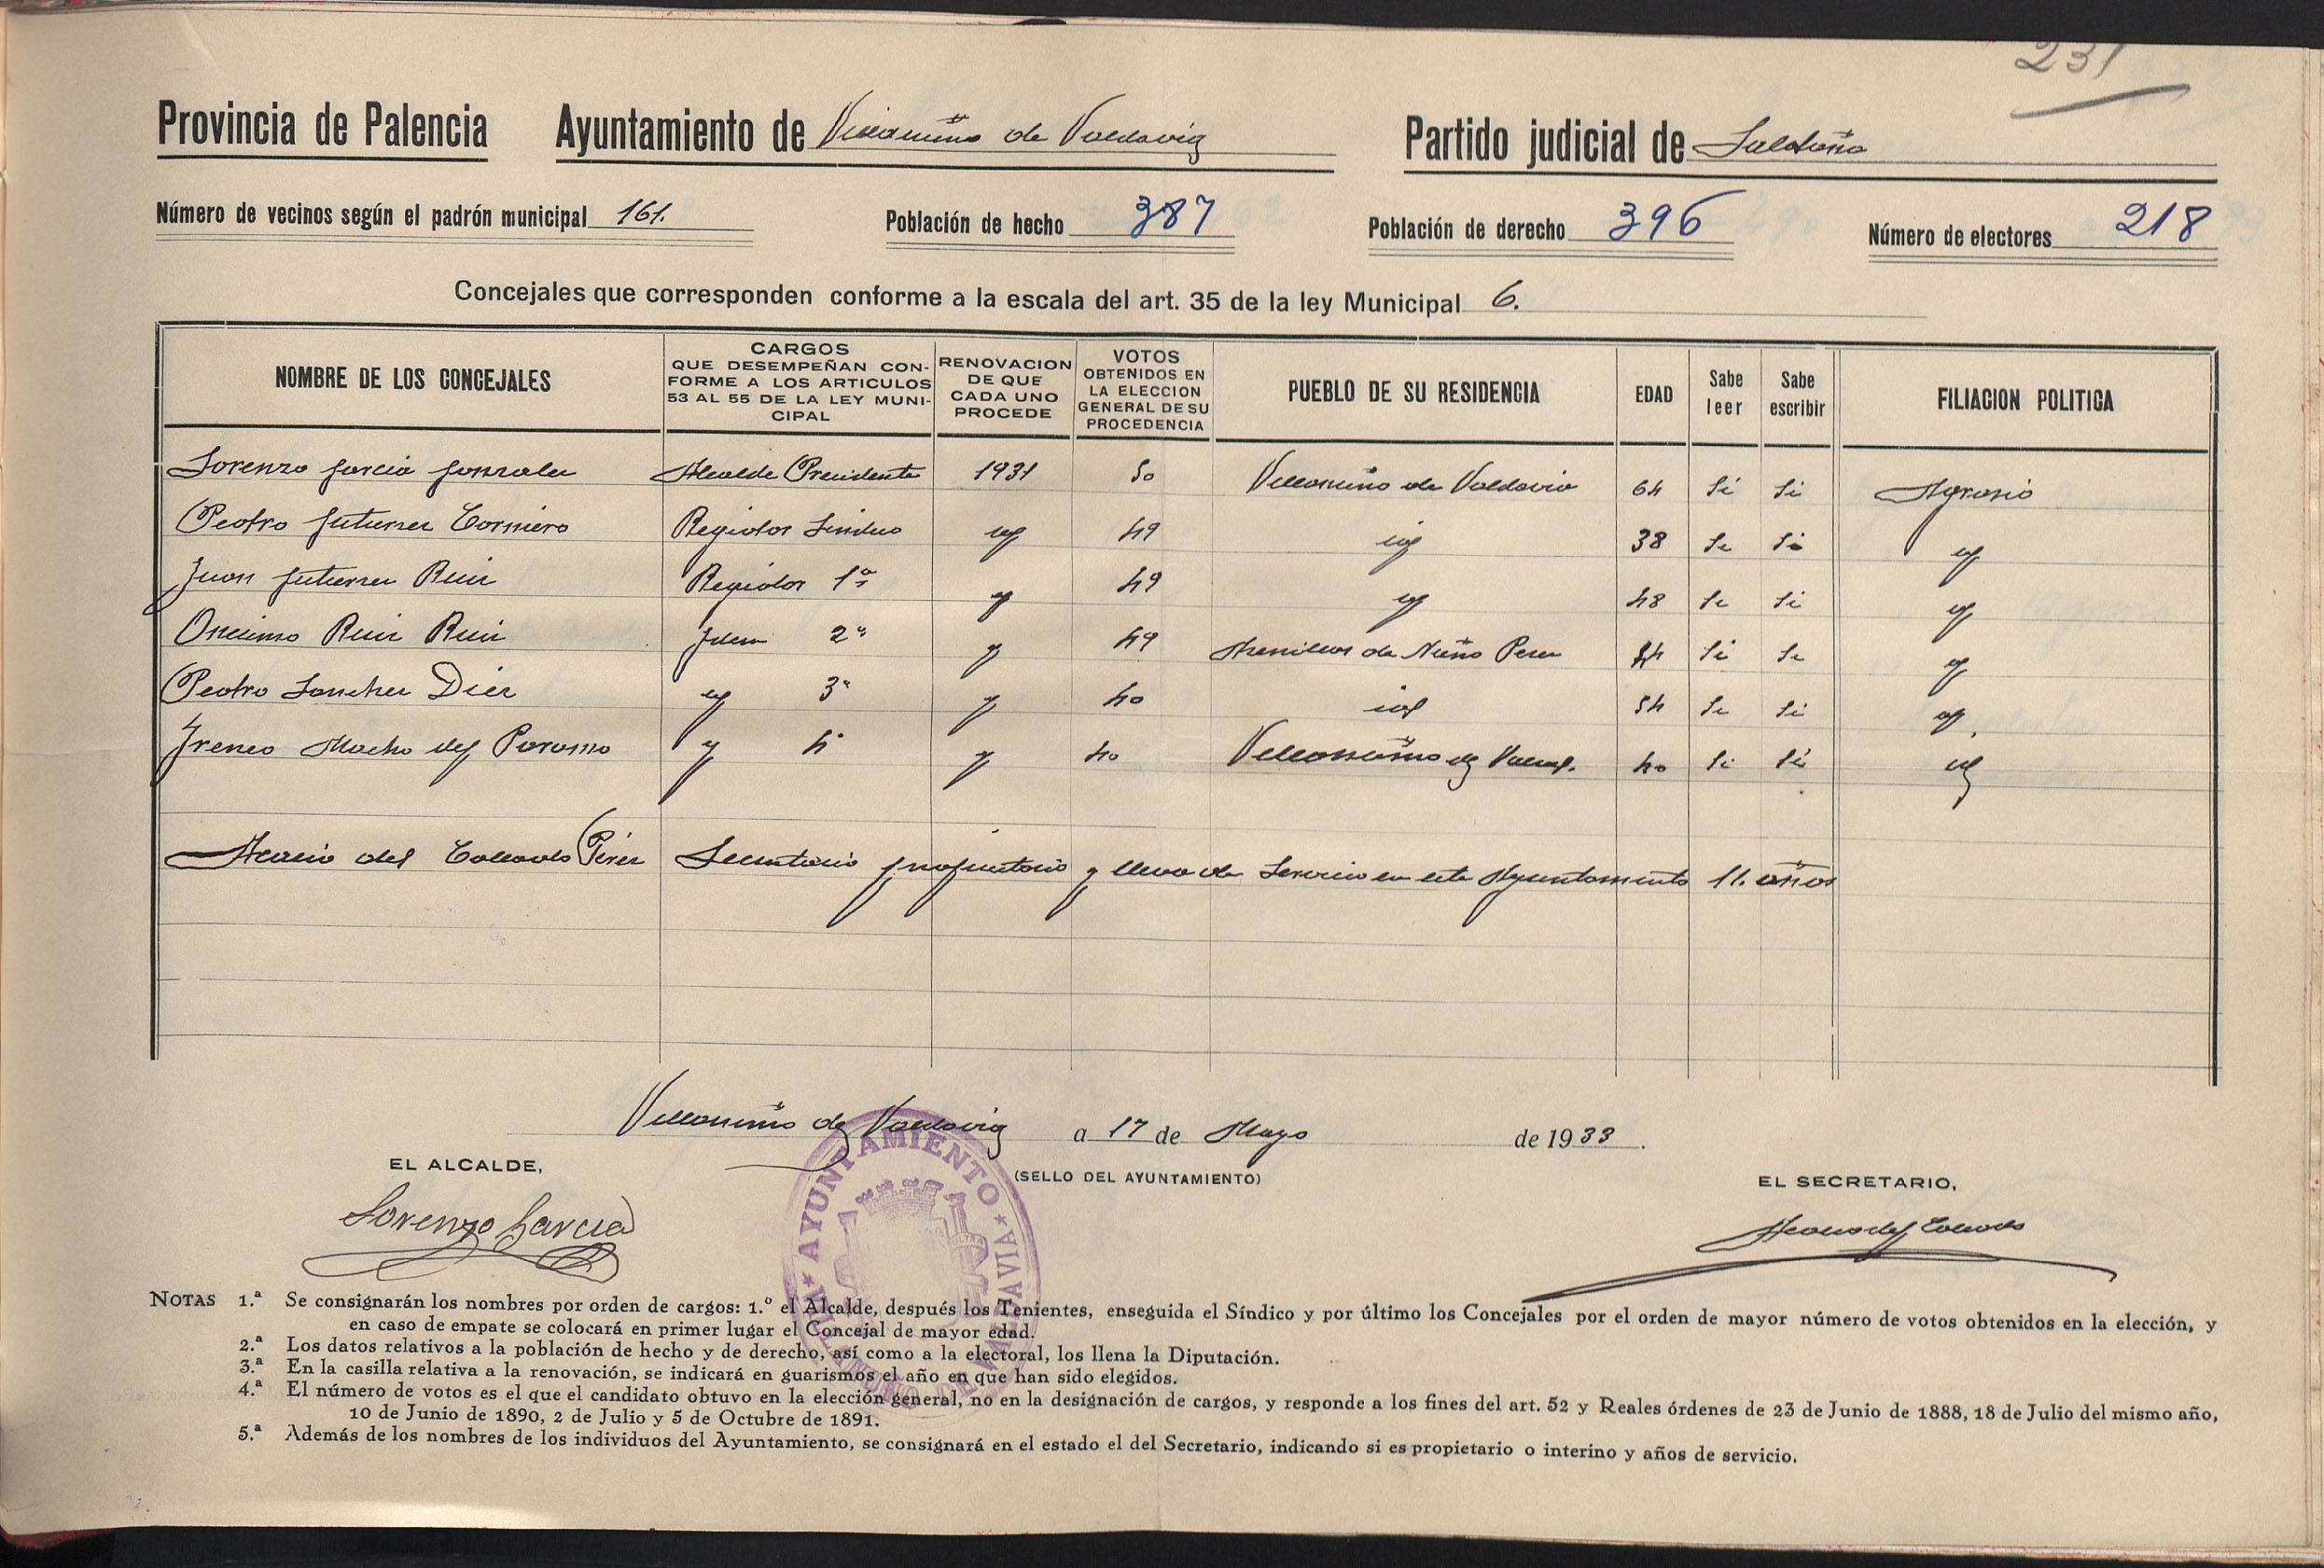 231
Provincia de Palencia Ayuntamiento de Villanuño de Valdavia Partido judicial de Saldaña
Número de vecinos según el padrón municipal 161. Población de hecho 387 Población de derecho 396 Número de electores 218
Concejales que corresponden conforme a la escala del art. 35 de la ley Municipal 6.
NOMBRE DE LOS CONCEJALES
CARGOS
QUE DESEMPEÑAN CON-
FORME A LOS ARTICULOS
53 AL 55 DE LA LEY MUNI-
CIPAL
RENOVACION
DE QUE
CADA UNO
PROCEDE
VOTOS
OBTENIDOS EN
LA ELECCION
GENERAL DE SU
PROCEDENCIA
PUEBLO DE SU RESIDENCIA
EDAD
Sabe
leer
Sabe
escribir
FILIACION POLITICA
Lorenzo Garcia Gonzalez Alcalde Presidente 1931 50 Villanuño de Valdavia 64 Si Si Agrario
Pedro Gutierrez Borniero Regidor Sindico id 49 id 38 Si Si id
Juan Gutierrez Ruiz Regidor 1º id 49 id 48 Si Si id
Onesimo Ruiz Ruiz Idem 2º id 49 Arenillas de Nuño Perez 44 Si Si id
Pedro Sanchez Diez id 3º id 40 id 54 Si Si id.
Ireneo Macho del Paramo id 4º id 40 Villanuño de Valdª. 40 Si Si id
Acacio del Collado Pérez Secretario propietario y lleva de Servicio en este Ayuntamiento 11. años
Villanuño de Valdavia a 17 de Mayo de 1933.
EL ALCALDE,
(SELLO DEL AYUNTAMIENTO)
EL SECRETARIO,
Lorenzo Garcia
Acacio del Collado
AYUNTAMIENTO
VILLANUÑO DE VALDAVIA
NOTAS 1.ª Se consignarán los nombres por orden de cargos: 1.º el Alcalde, después los Tenientes, enseguida el Síndico y por último los Concejales por el orden de mayor número de votos obtenidos en la elección, y
en caso de empate se colocará en primer lugar el Concejal de mayor edad.
2.ª Los datos relativos a la población de hecho y de derecho, así como a la electoral, los llena la Diputación.
3.ª En la casilla relativa a la renovación, se indicará en guarismos el año en que han sido elegidos.
4.ª El número de votos es el que el candidato obtuvo en la elección general, no en la designación de cargos, y responde a los fines del art. 52 y Reales órdenes de 23 de Junio de 1888, 18 de Julio del mismo año,
10 de Junio de 1890, 2 de Julio y 5 de Octubre de 1891.
5.ª Además de los nombres de los individuos del Ayuntamiento, se consignará en el estado el del Secretario, indicando si es propietario o interino y años de servicio.